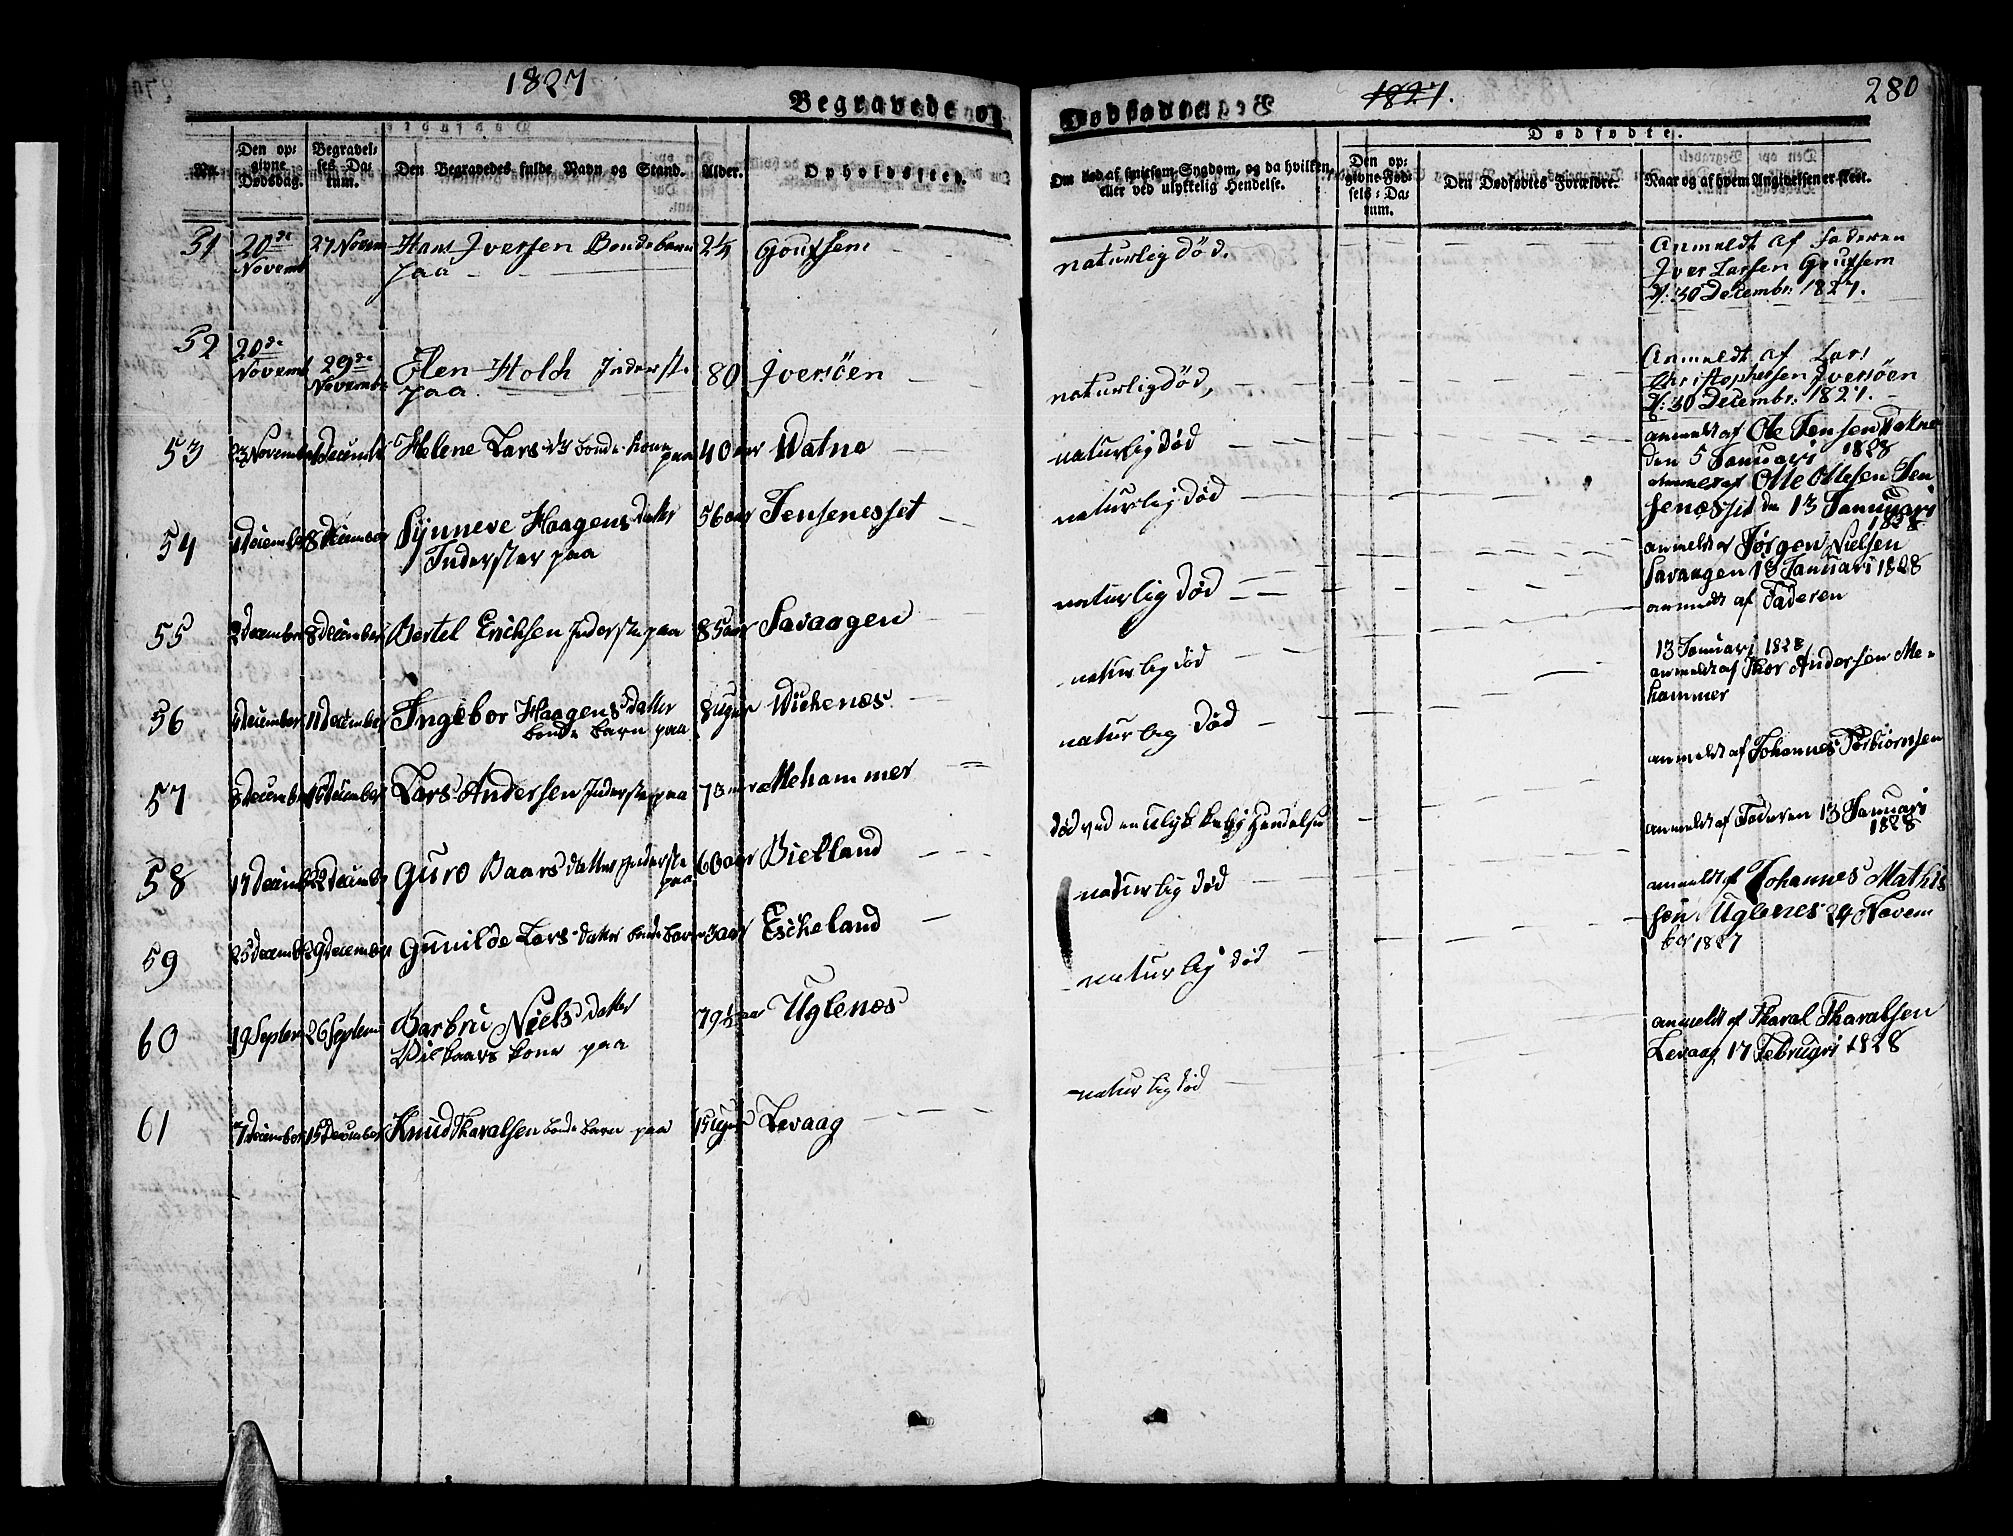 1827
Begravede og
Dødfødte
1827.
280
Dødfødte.
No.
Den op=
givne
Dødsdag.
Begravel=
ses=Da=
tum.
Den Begravedes fulde Navn og Stand.
Alder.
Opholdssted.
Om død af smitsom Sygdom, og da hvilken,
eller ved ulykkelig Hendelse.
Den op=
givne Fød=
sels=Da=
tum.
Den Dødfødtes Forældre.
Naar og af hvem Angivelsen er skeet.
51 20de Novemb 27 Novem Hans Iversen Bondebarn paa 2¼ naturligdød.
Anmeldt af Faderen
Iver Larsen
d: 30 Decembr: 1827.
52 20de Novemb 29de Novembr Elen Holck Inderste paa 80 Iversöen naturligdød,
Anmeldt af Lars
Christophersen Iversöen
d: 30 Decembr: 1827.
53 23 November 1 December Helene Larsdtr bonde kone paa 40 aar Watne naturligdød
anmeldt af Ole Jensen Vatne
den 5 Januari 1828
54 1 December 8 December Synneve Haagensdatter Inderster paa 56 aar Jensenesset naturligdød
anmeldt af Otte Ottesen Jen
senesset den 13 Januari
1828
55 2 December 8 December Bertel Erichsen Inderste paa 85 aar Savaagen naturlig død
anmeldt af Jørgen Nielsen
Savaagen 13 Januari 1828
56 December 11 December Ingebor Haagensdatter bonde barn paa 8 uger Wichenæs naturlig død
anmeldt af Faderen
13 Januari 1828
57 8 December 16 December Lars Andersen Inderste paa 73 aar Mehammer naturlig død
anmeldt af Thor Andersen Me-
hammer
58 17 Decemb 22 Decemb Guro Baarsdatter Inderste paa 60 aar død ved en ulykkelig Hendelse
anmeldt af Johannes Torbiornsen
59 25 Decemb 29 December Gunilde Larsdatter bonde barn 3 aar Escheland naturlig død
anmeldt af Faderen 13 Januari
1828
60 19 Septem 26 Septem Barbru Nielsdatter Vilkaars kone paa 79½ aar Uglenæs naturlig død
anmeldt af Johannes Mathis
sen Uglenes 24 Novem
ber 1827
61 7 December 15 December Knud Tharalsen bonde barn paa 15 uger Levaag naturlig død
anmeldt af Tharal Tharalsen
Levaag 17 Februari 1828